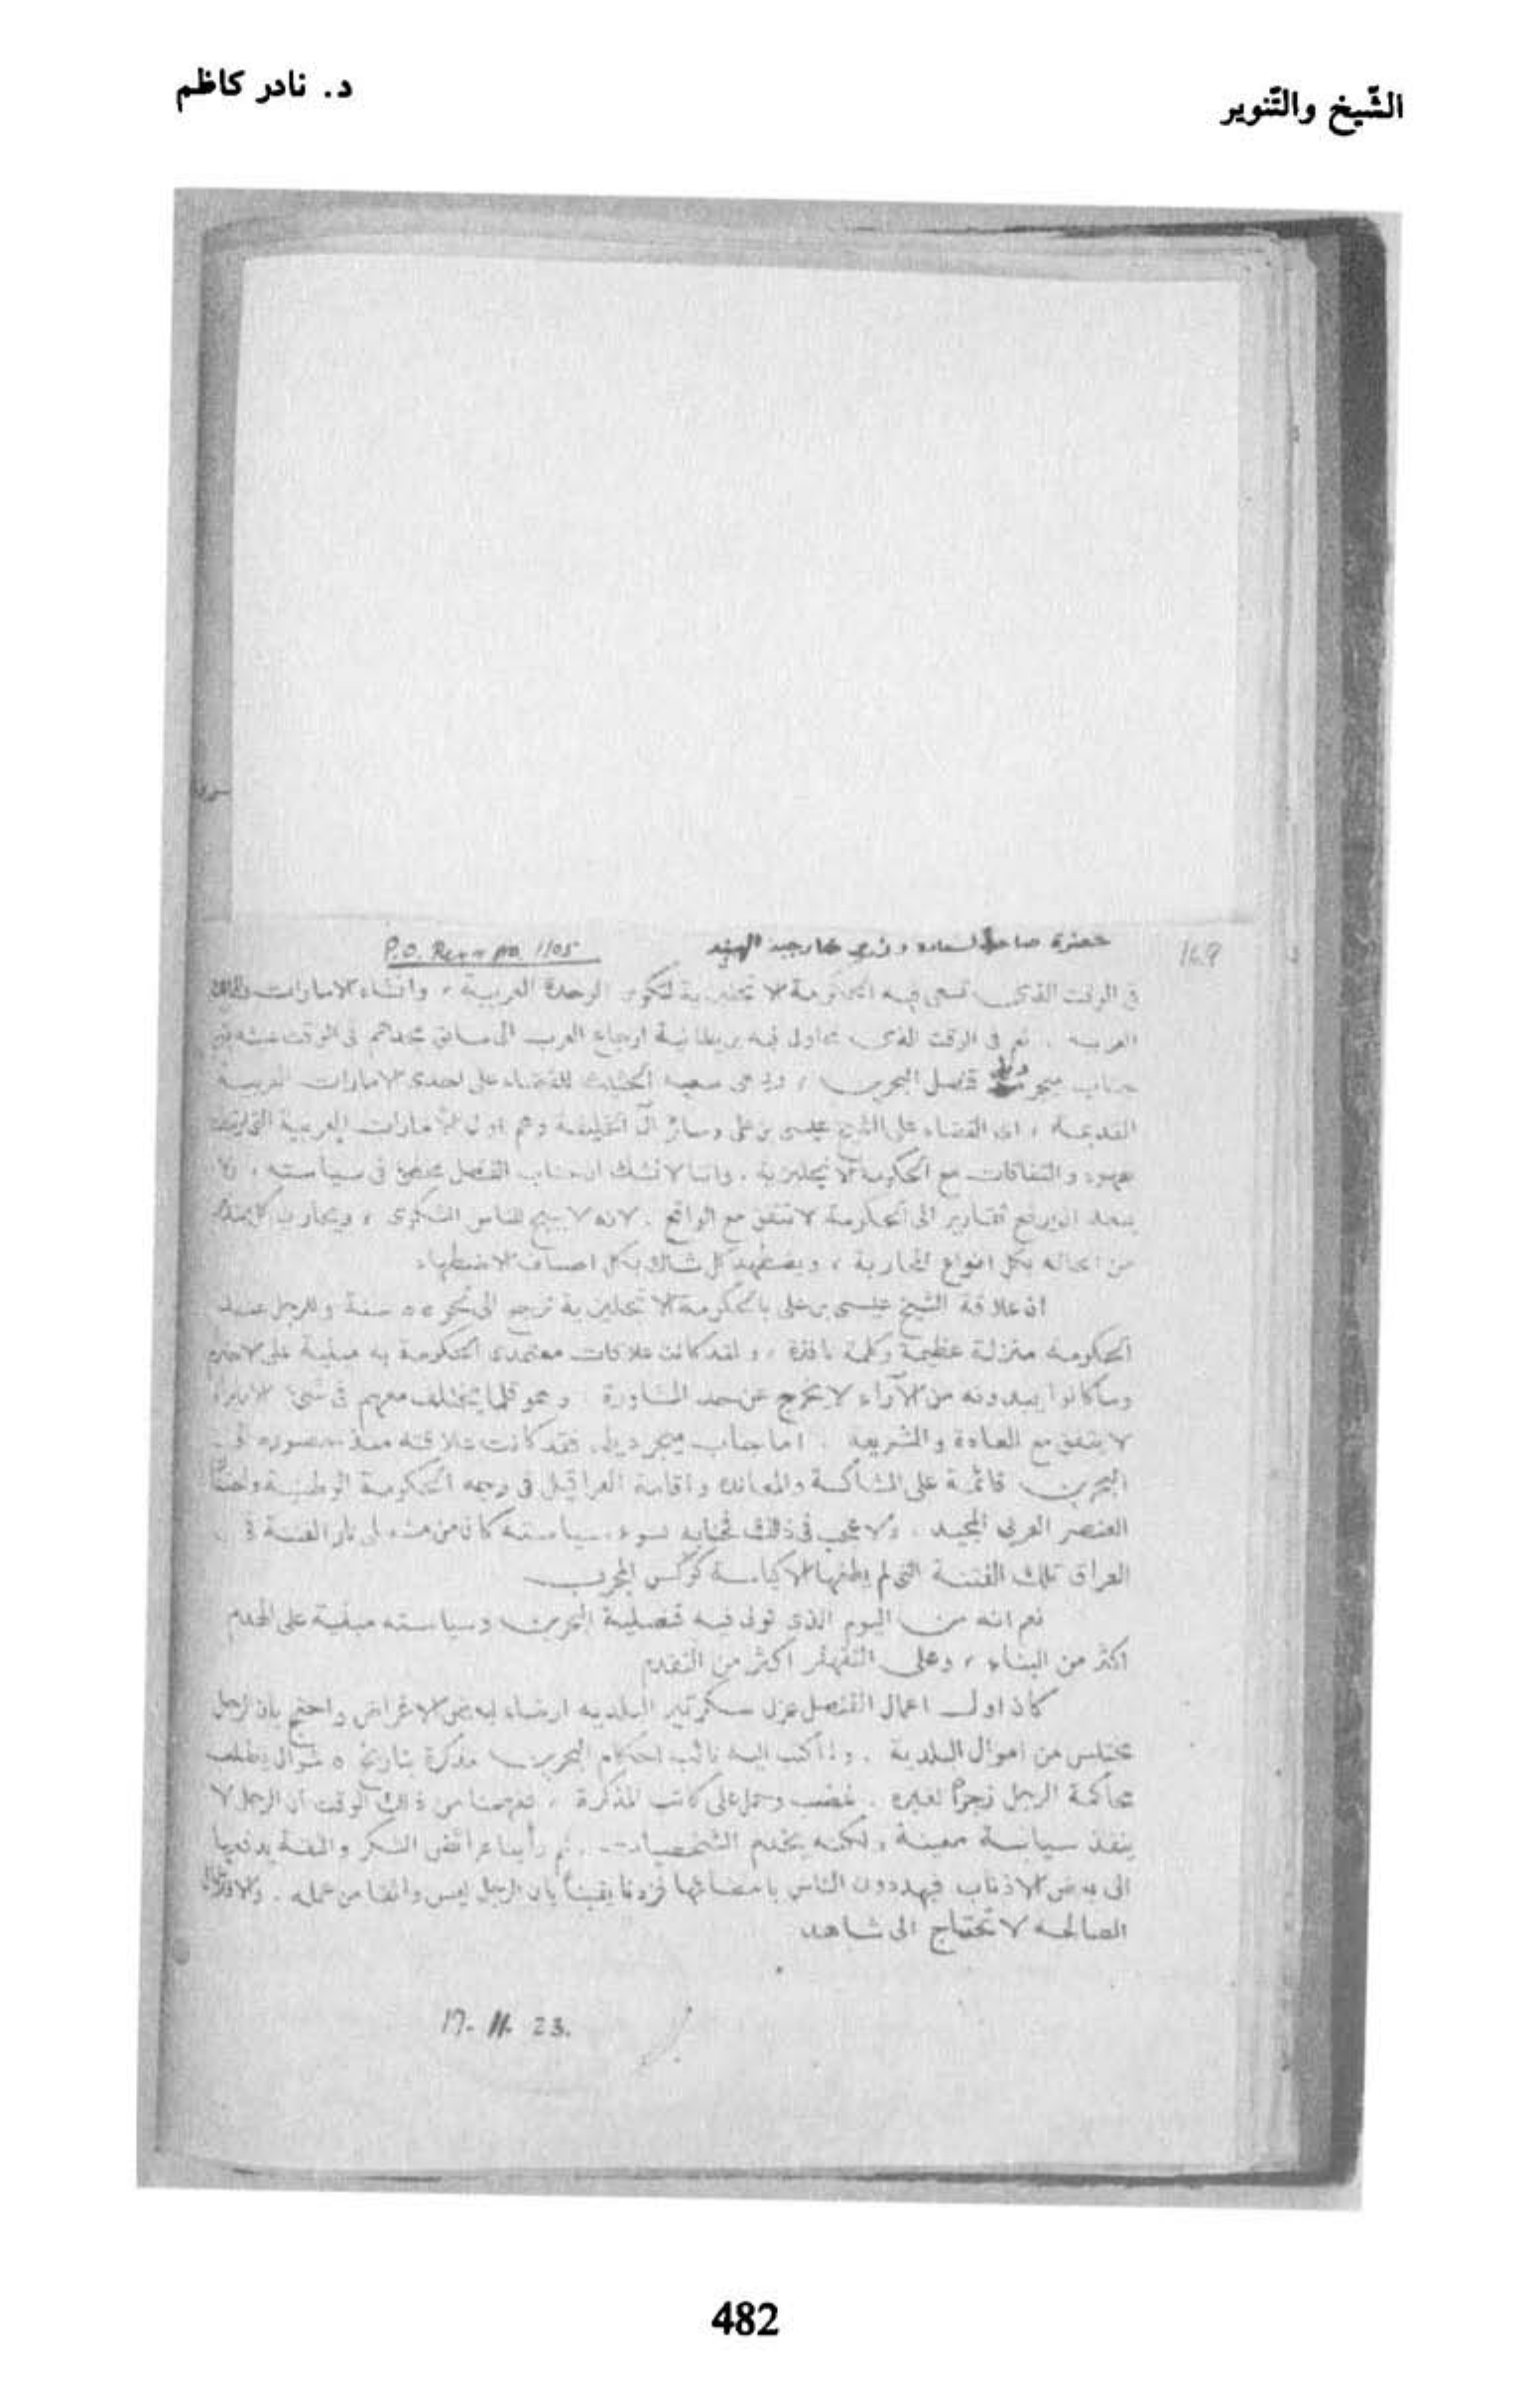 الشّيخ والتّنوير
د. نادر كاظم
169
حضرة صاحب السعادة وزير خارجية الهند
P.O. Rec no 1105
في الوقت الذي تسعى فيه الحكومة الانجليزية لتكوين الوحدة العربية، وانشاء الامارات
العربية. نعم في الوقت الذي تحاول فيه بريطانية ارجاع العرب الى سابق مجدهم في الوقت
جناب ميجر ديلي قنصل البحرين، سعيه الحثيث للقضاء على احدى الامارات العربية
القديمة، اي القضاء على الشيخ عيسى بن علي وسائر آل الخليفة وهم اول الامارات العربية
عهود واتفاقات مع الحكومة الانجليزية. واننا لا نشك ان جناب القنصل مخفق في سياسته،
ان يرفع تقارير الى الحكومة لا تتفق مع الواقع. لانه لا يبيح للناس الشكوى، ويحارب
من اعماله بكل انواع المحاربة، ويضطهد كل شاك بكل اصناف الاضطهاد
ان علاقة الشيخ عيسى بن علي بالحكومة الانجليزية ترجع الى نحو ٥٥ سنة وللرجل عند
الحكومة منزلة عظيمة وكلمة نافذة، ولقد كانت علاقات معتمدي الحكومة به مبنية على
وما كانوا يبدونه من الآراء لا يخرج عن حد المشاورة. وهو قلما يختلف معهم في شيء
لا يتفق مع العادة والشريعة. اما جناب ميجر ديلي فقد كانت علاقته منذ حضوره
البحرين قائمة على المشاكسة والمعاندة واقامة العراقيل في وجه الحكومة الوطنية
العنصر العربي المجيد. ولا عجب في ذلك فجنابه لسوء سياسته كان من نار الفتنة في
العراق تلك الفتنة التي لم يطفئها الا كياسة كوكس المجرب
نعم انه من اليوم الذي تولى فيه قنصلية البحرين وسياسته مبنية على الهدم
اكثر من البناء، وعلى التقهقر اكثر من التقدم
كان اول اعمال القنصل عزل سكرتير البلدية ارضاء لبعض الاغراض واحتج بان الرجل
مختلس من اموال البلدية. ولما كتب اليه نائب احكام البحرين مذكرة بتاريخ ٥ شوال يطلب
محاكمة الرجل زجرًا لغيره. غضب وحمل على كاتب المذكرة، ففهمنا من ذلك الوقت ان الرجل لا
ينفذ سياسة معينة ولكنه يخدم الشخصيات. ثم رأينا عرائض الشكر والثقة يدفعها
الى بعض الاذناب فيهددون الناس بامضائها فزدنا يقينًا بان الرجل ليس واثقا من عمله.
الصالحة لا تحتاج الى شاهد
17- 11- 23.
482